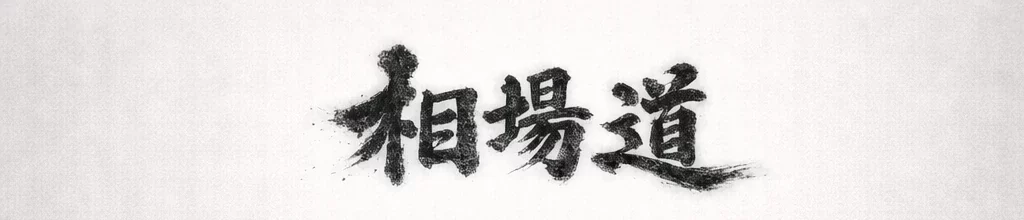 相場道